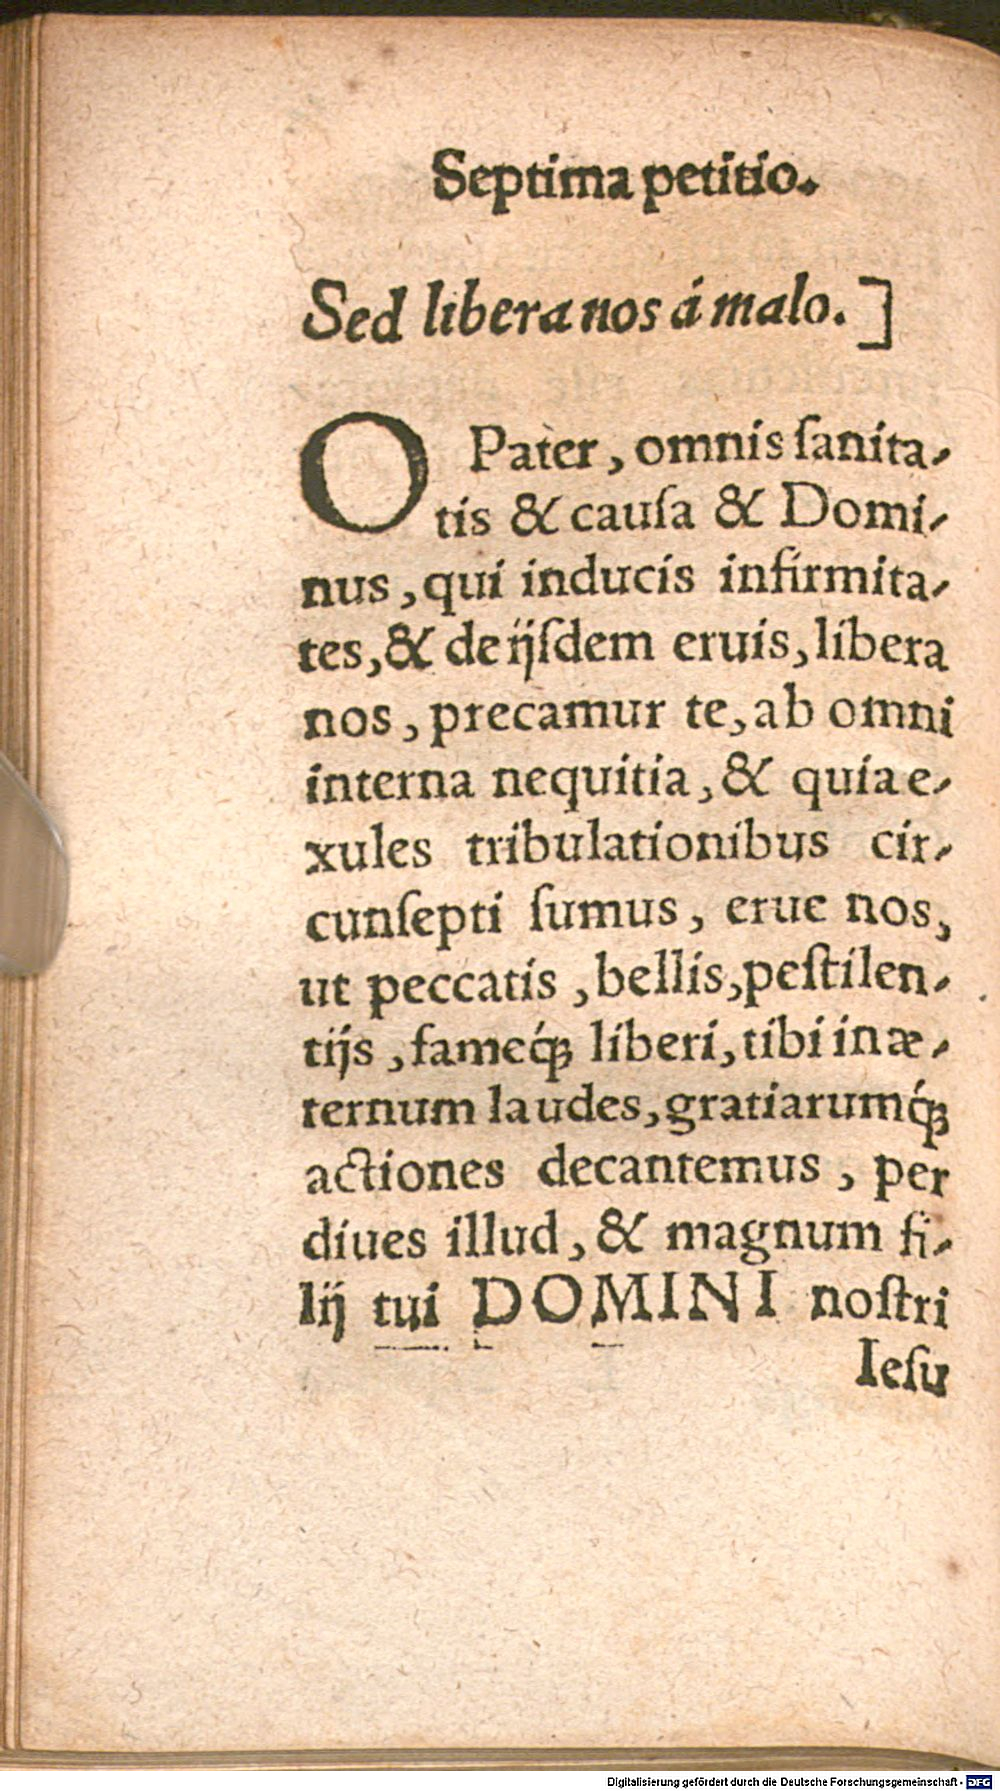 Septima petitio.
Sed libera nos á malo.]
O Pater, omnis ſanita-
tis & cauſa & Domi-
nus, qui inducis infirmita-
tes, & de ijſdem eruis, libera
nos, precamur te, ab omni
interna nequitia, & quia e-
xules tribulationibus cir-
cunſepti ſumus, erue nos,
ut peccatis, bellis, peſtilen-
tijs, fameq́ꝫ liberi, tibi in æ-
ternum laudes, gratiarumq́ꝫ
actiones decantemus, per
diues illud, & magnum fi-
lij tui DOMINI noſtri
Ieſu
Digitalisierung gefördert durch die Deutsche Forschungsgemeinschaft - DFG